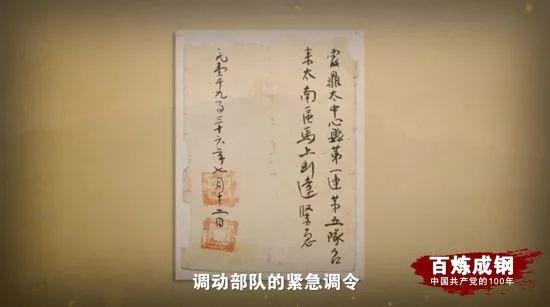 霞鼎太中心縣第一連第五隊
來太南區馬上到達緊急
元壹千九百三十六年七月十二日
调动部队的紧急调令
百炼成钢
中国共产党的100年